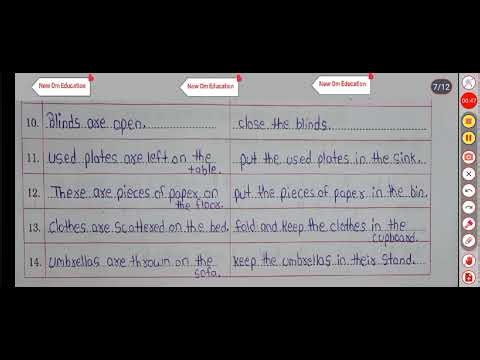 New Om Education
New Om Education
New Om Education
7/12
00:47
10. Blinds are open. close the blinds.
11. used plates are left on the put the used plates in the sink.
table.
12. There are pieces of paper on put the pieces of paper in the bin.
the floor.
13. clothes are scattered on the bed. fold and keep the clothes in the
cupboard.
14. umbrellas are thrown on the keep the umbrellas in their stand.
sofa.